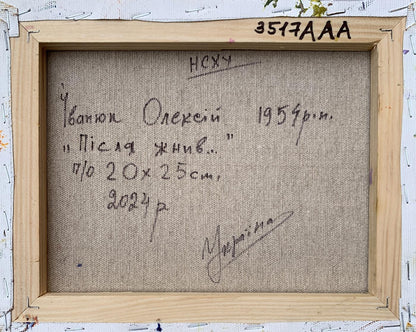 3517AAA
НСХУ
Іванюк Олексій 1954р.н.
„Після жнив..."
п/о 20х25см,
2024р
Україна